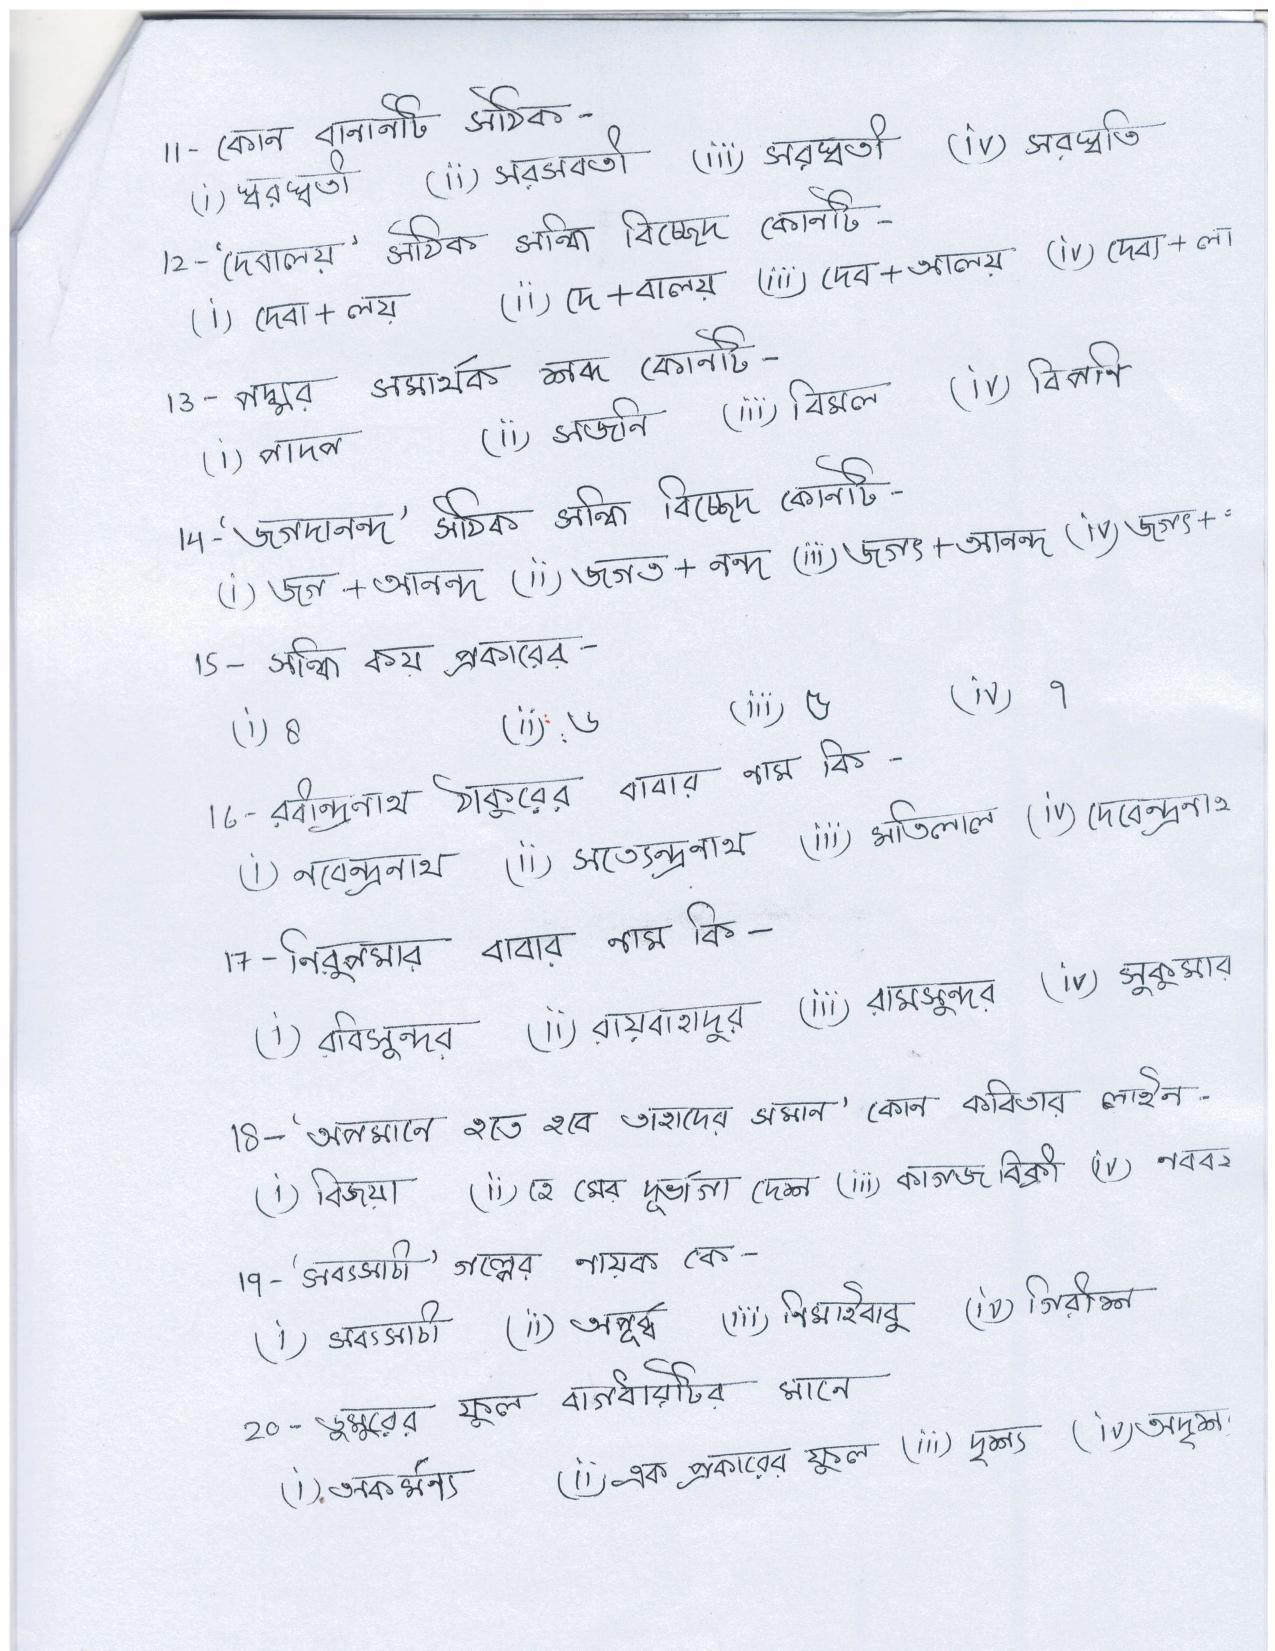 11- কোন বানানটি সঠিক -
(i) স্বরস্বতী (ii) সরসবতী (iii) সরস্বতী (iv) সরস্বতি
12- 'দেবালয়' সঠিক সন্ধি বিচ্ছেদ কোনটি -
(i) দেবা + লয় (ii) দে + বালয় (iii) দেব + আলয় (iv) দেব্য + লা
13- পদ্মর সমার্থক শব্দ কোনটি -
(i) পাদপ (ii) সজনি (iii) বিমল (iv) বিপণি
14- 'জগদানন্দ' সঠিক সন্ধি বিচ্ছেদ কোনটি -
(i) জগ + আনন্দ (ii) জগত + নন্দ (iii) জগৎ + আনন্দ (iv) জগৎ +
15- সন্ধি কয় প্রকারের -
(i) ৪ (ii) ৬ (iii) ৫ (iv) ৭
16- রবীন্দ্রনাথ ঠাকুরের বাবার নাম কি -
(i) নবেন্দ্রনাথ (ii) সত্যেন্দ্রনাথ (iii) মতিলাল (iv) দেবেন্দ্রনাথ
17- নিরুপমার বাবার নাম কি -
(i) রবিসুন্দর (ii) রায়বাহাদুর (iii) রামসুন্দর (iv) সুকুমার
18- 'অপমানে হতে হবে তাহাদের সমান' কোন কবিতার লাইন -
(i) বিজয়া (ii) হে মোর দূর্ভাগা দেশ (iii) কাগজ বিক্রী (iv) নবব
19- 'সব্যসাচী' গল্পের নায়ক কে -
(i) সব্যসাচী (ii) অপূর্ব্ব (iii) নিমাইবাবু (iv) গিরীশ
20- ডুমুরের ফুল বাগধারাটির মানে
(i) অকর্মন্য (ii) এক প্রকারের ফুল (iii) দৃশ্য (iv) অদৃশ